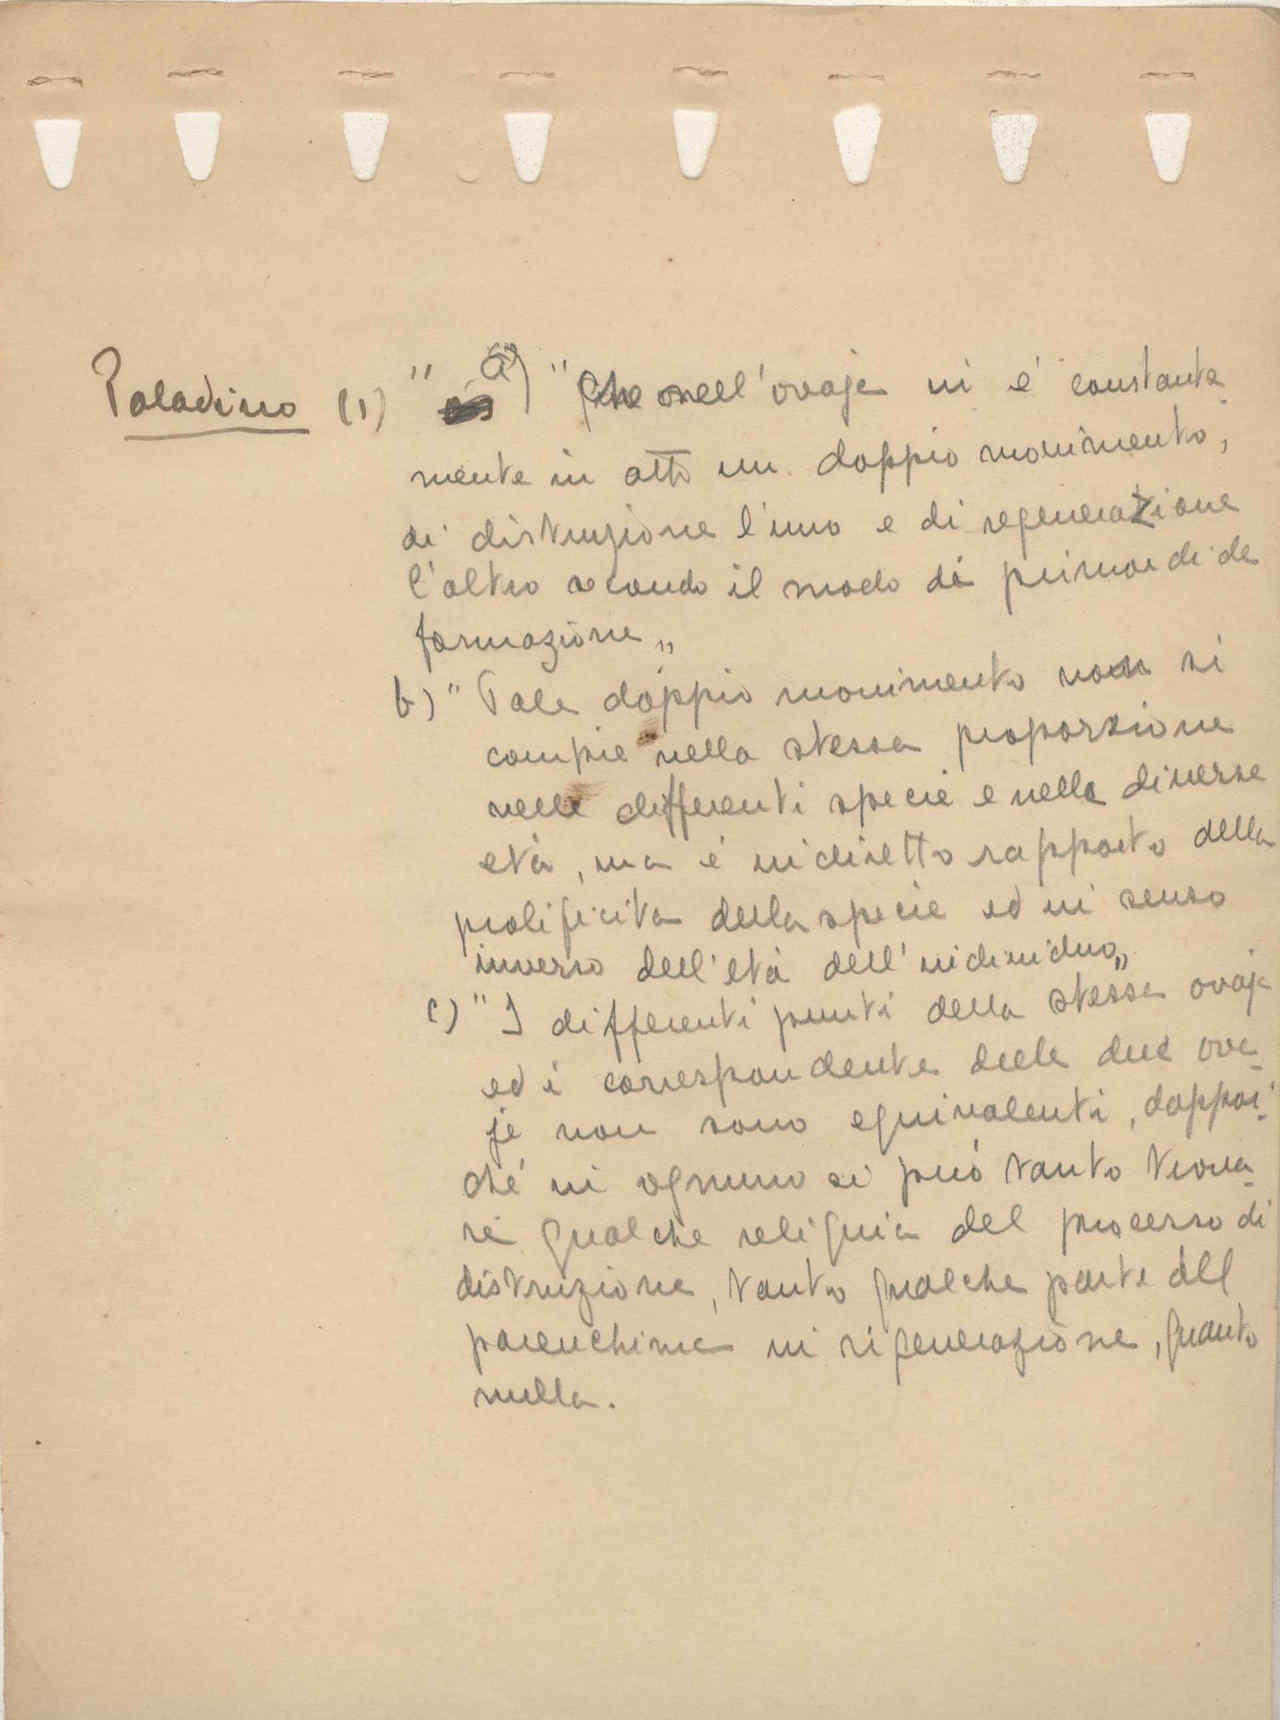 Paladino (1) " a) " Che nell'ovaje vi é constante
mente in atto un doppio movimento,
di distruzione l'uno e di regenerazione
l'altro secondo il modo di primordi de
formazione „
b) " Tale doppio movimento non si
compie nella stessa proporzione
nelle differenti specie e nelle diverse
etá, ma é in diretto rapporto della
prolificita della specie ed in senso
inverso dell'etá dell'individuo „
c) " I differenti punti della stessa ovaje
ed i correspondente delle due ova-
je non sono equivalenti, dappoi-
ché in ognuno si puó tanto trova-
re qualche reliquia del processo di
distruzione, tanto qualche parte del
parenchima in rigenerazione, quanto
nulla.